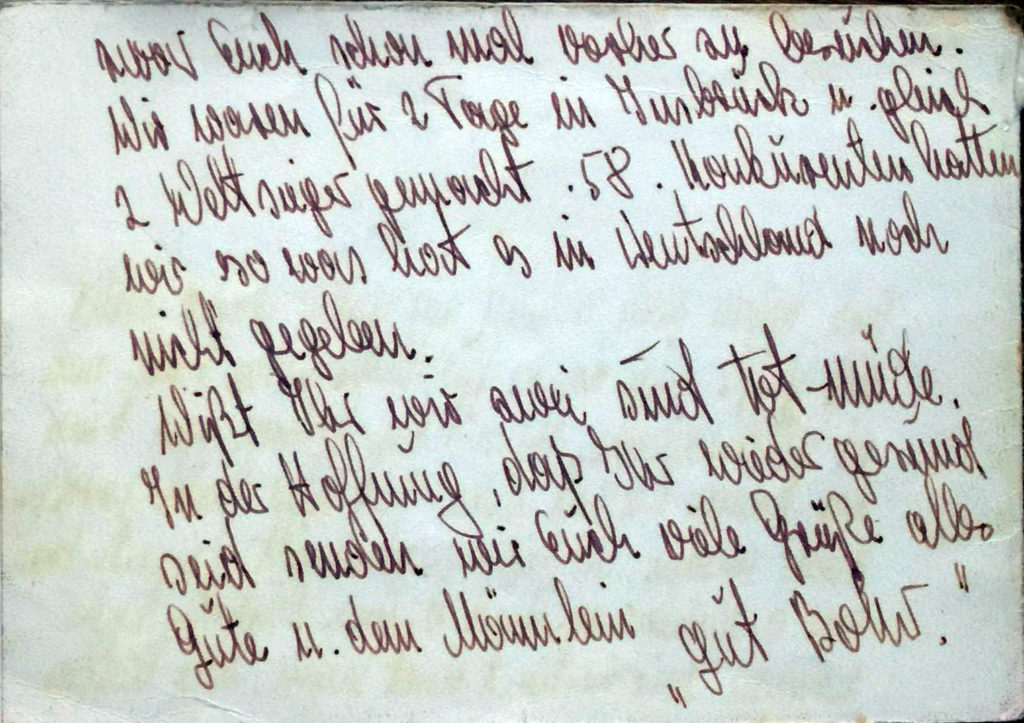 wars Euch schon mal vorher zu besuchen.
Wir waren für 2 Tage in Insbrück u. gleich
2 Weltsieger gemacht. 58. Konkürenten hatten
wir so was hat es in Deutschland noch
nicht gegeben.
Wißt Ihr wir zwei sind tot-müde.
In der Hoffnung, daß Ihr wieder gesund
seid senden wir Euch viele Grüße alles
Gute u. dem Männlein „gut Bohr."